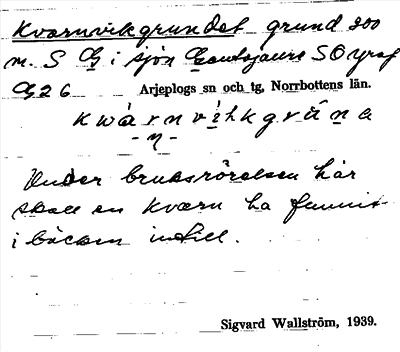 Kvarnvikgrundet grund 300
m. S G i sjön Gautojaure SO
G 26 Arjeplogs sn och tg, Norrbottens län.
Under bruksrörelsen här
skall en kvarn ha funnit
i bäcken intill.
Sigvard Wallström, 1939.